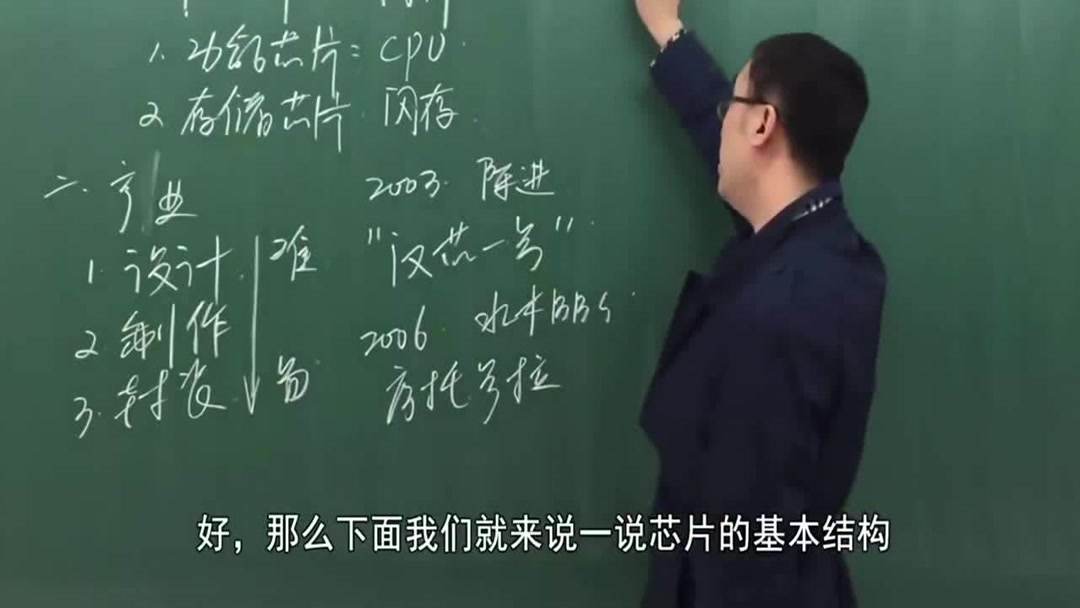 1. 功能芯片: CPU
2. 存储芯片 闪存
二. 产业
2003. 陈进
1. 设计
难
"汉芯一号"
2. 制作
2006 水木BBS
3. 封装
易
摩托罗拉
好，那么下面我们就来说一说芯片的基本结构